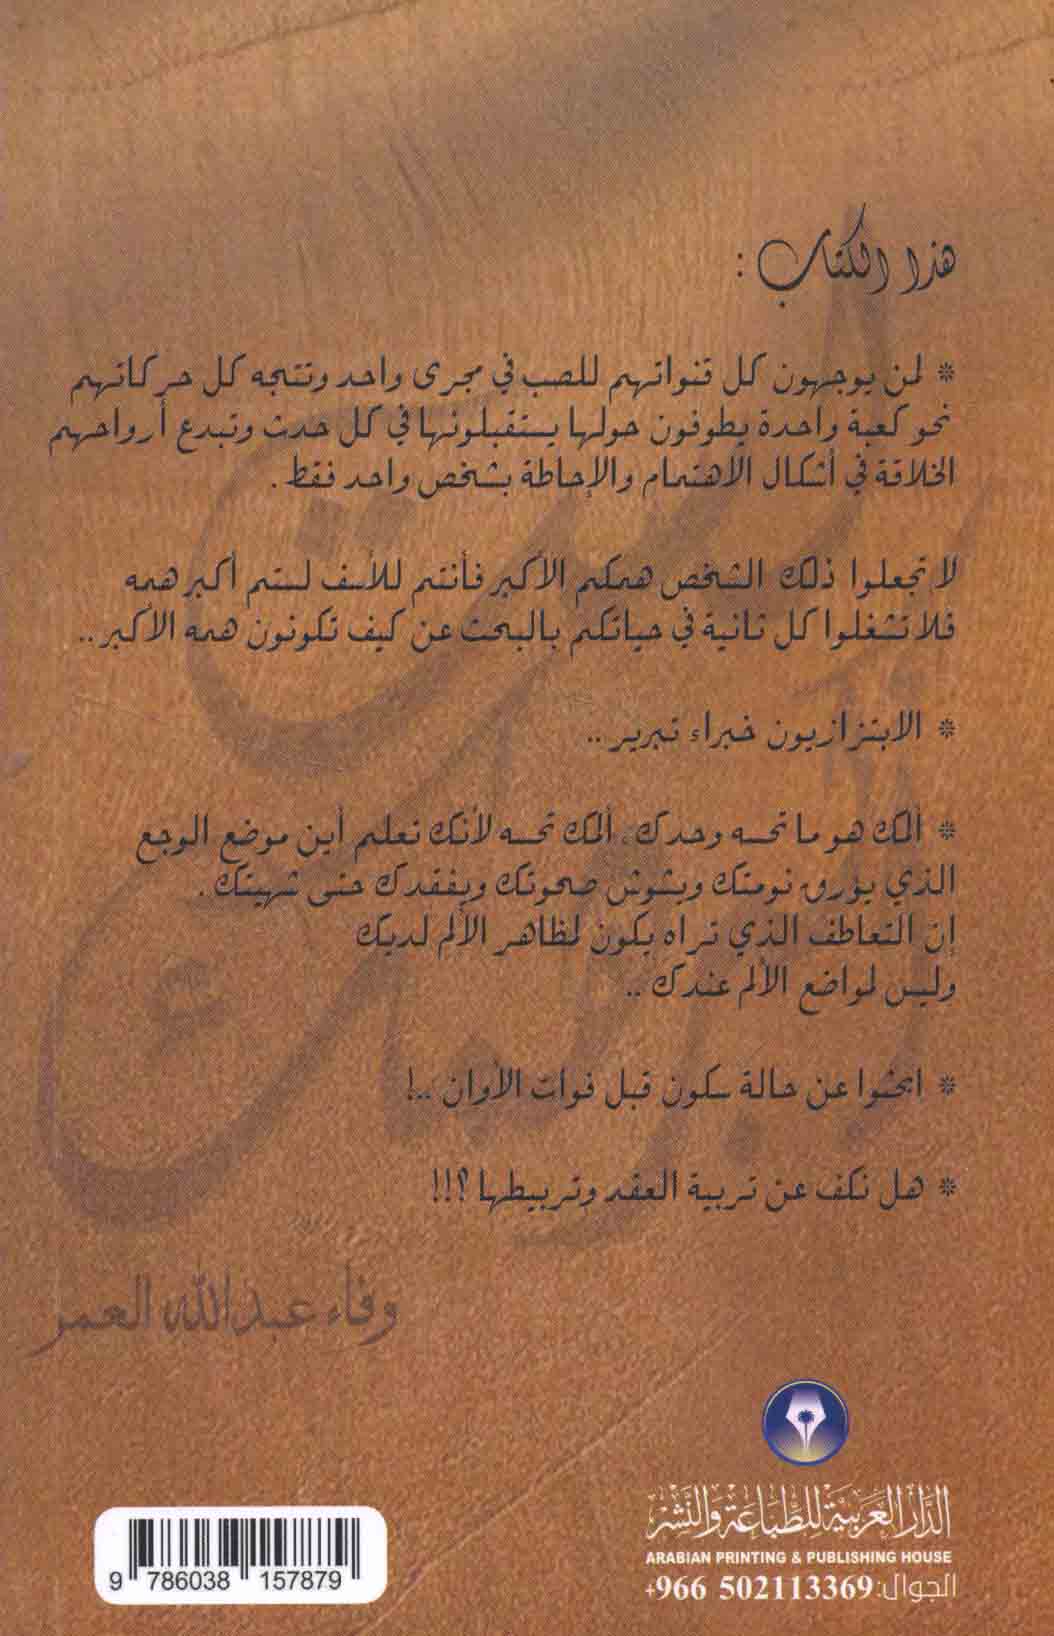 هذا الكتاب :
* لمن يوجهون كل قنواتهم للصب في مجرى واحد وتتجه كل حركاتهم
نحو كعبة واحدة يطوفون حولها يستقبلونها في كل حدث وتبدع أرواحهم
الخلاقة في أشكال الاهتمام والإحاطة بشخص واحد فقط .
لا تجعلوا ذلك الشخص همكم الأكبر فأنتم للأسف لستم أكبر همه
فلا تشغلوا كل ثانية في حياتكم بالبحث عن كيف تكونون همه الأكبر ..
* الابتزازيون خبراء تبرير ..
* ألمك هو ما تحسه وحدك، ألمك تحسه لأنك تعلم أين موضع الوجع
الذي يؤرق نومتك ويشوش صحوتك ويفقدك حتى شهيتك .
إن التعاطف الذي تراه يكون لمظاهر الألم لديك
وليس لمواضع الألم عندك ..
* ابحثوا عن حالة سكون قبل فوات الأوان ..!
* هل نكف عن تربية العقد وتربيطها ؟!!
وفاء عبدالله العمر
الدَّار العَرَبيَّة للطِّبَاعَة والنَّشْر
ARABIAN PRINTING & PUBLISHING HOUSE
الجوال: +966 502113369
9 786038 157879